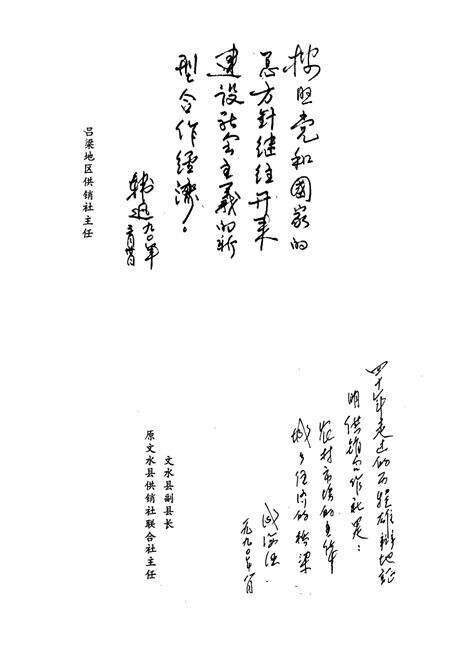 按照党和国家的
总方针继往开来
建设社会主义的新
型合作经济。
韩
九〇年
吕梁地区供销社主任
四十年走过的历程雄辩地证
明供销合作社是：
农村市场的主体
城乡经济的桥梁
一九九〇年
文水县副县长
原文水县供销社联合社主任